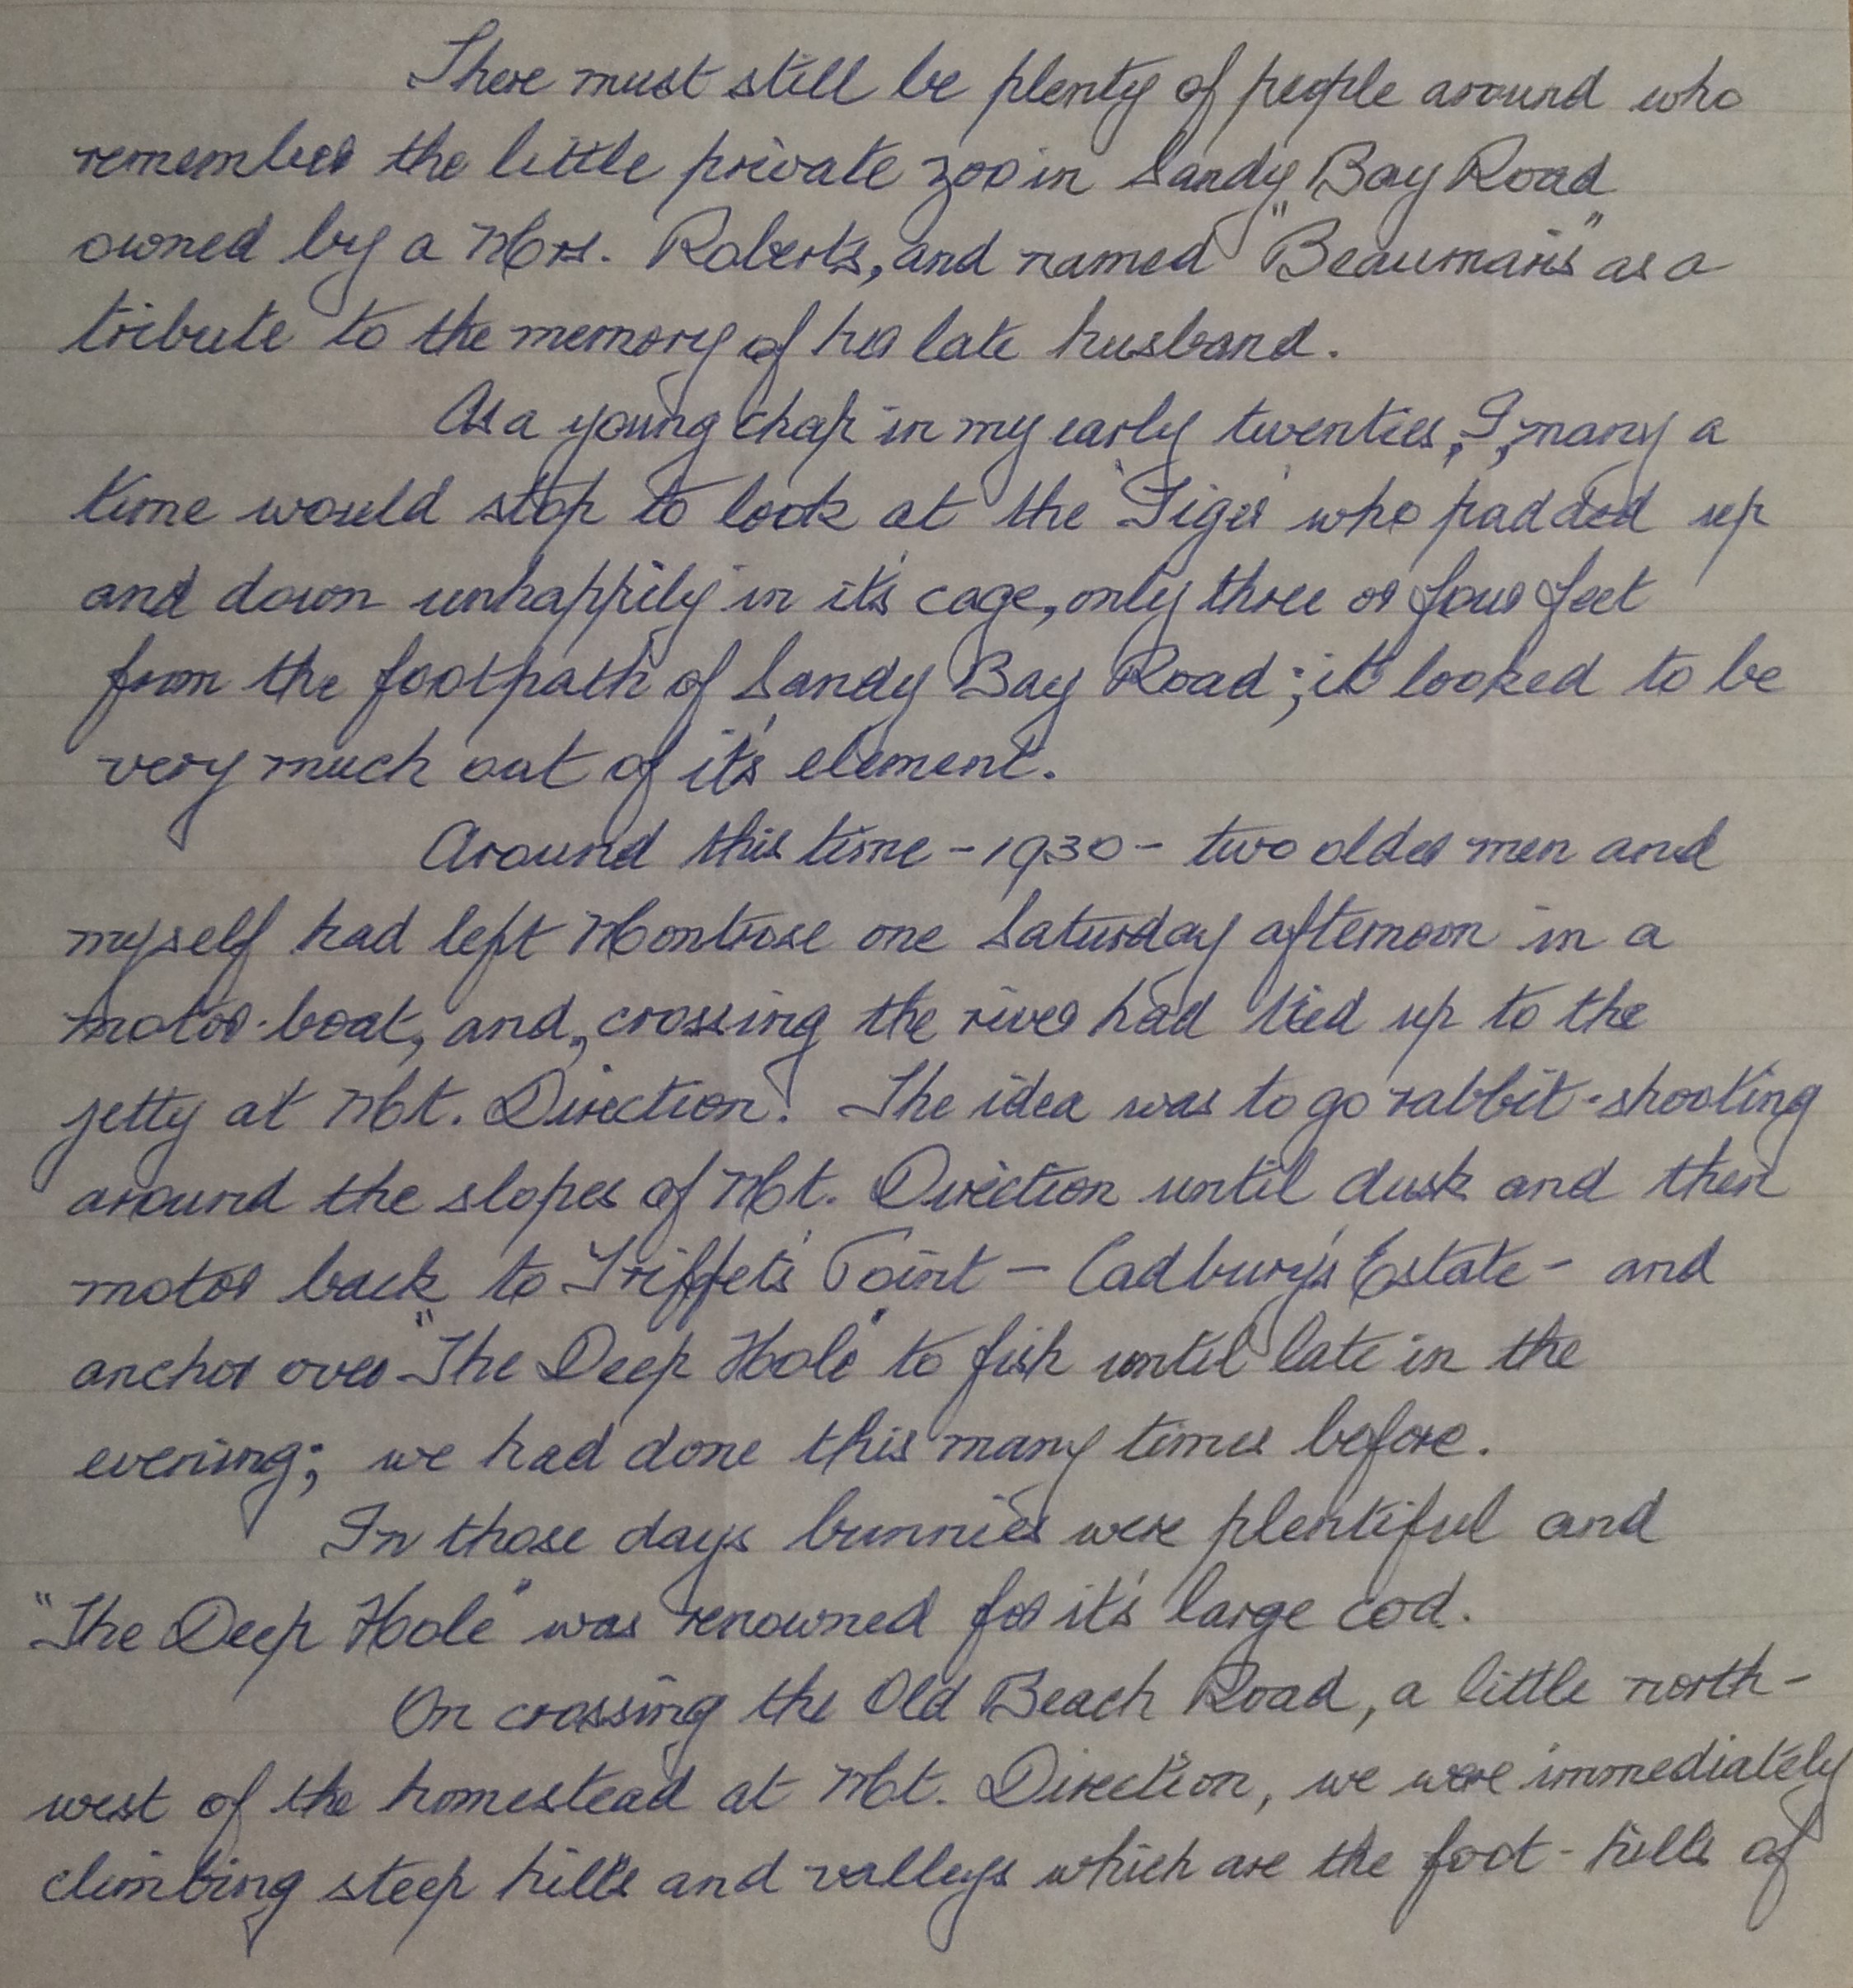 There must still be plenty of people around who
remember the little private zoo in Sandy Bay Road
owned by a Mrs. Roberts, and named "Beaumaris" as a
tribute to the memory of her late husband.
As a young chap in my early twenties, I, many a
time would stop to look at the 'Tiger' who padded up
and down unhappily in it's cage, only three or four feet
from the footpath of Sandy Bay Road; it looked to be
very much out of it's element.
Around this time - 1930 - two older men and
myself had left Montrose one Saturday afternoon in a
motor-boat, and, crossing the river had tied up to the
jetty at Mt. Direction. The idea was to go rabbit-shooting
around the slopes of Mt. Direction until dusk and then
motor back to Triffet's Point - Cadbury's Estate - and
anchor over "The Deep Hole" to fish until late in the
evening; we had done this many times before.
In those days bunnies were plentiful and
"The Deep Hole" was renowned for it's large cod.
On crossing the Old Beach Road, a little north-
west of the homestead at Mt. Direction, we were immediately
climbing steep hills and valleys which are the foot-hills of